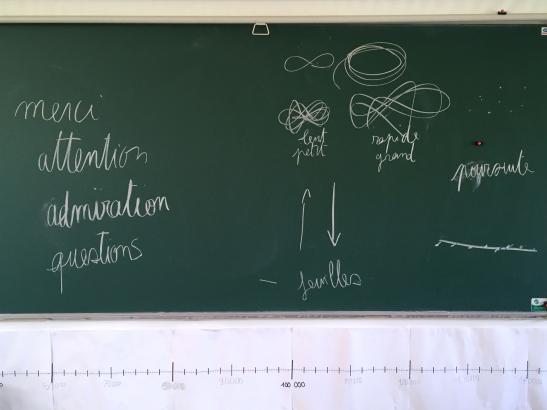 merci
attention
admiration
questions
lent
petit
rapide
grand
poursuite
feuilles
100 000